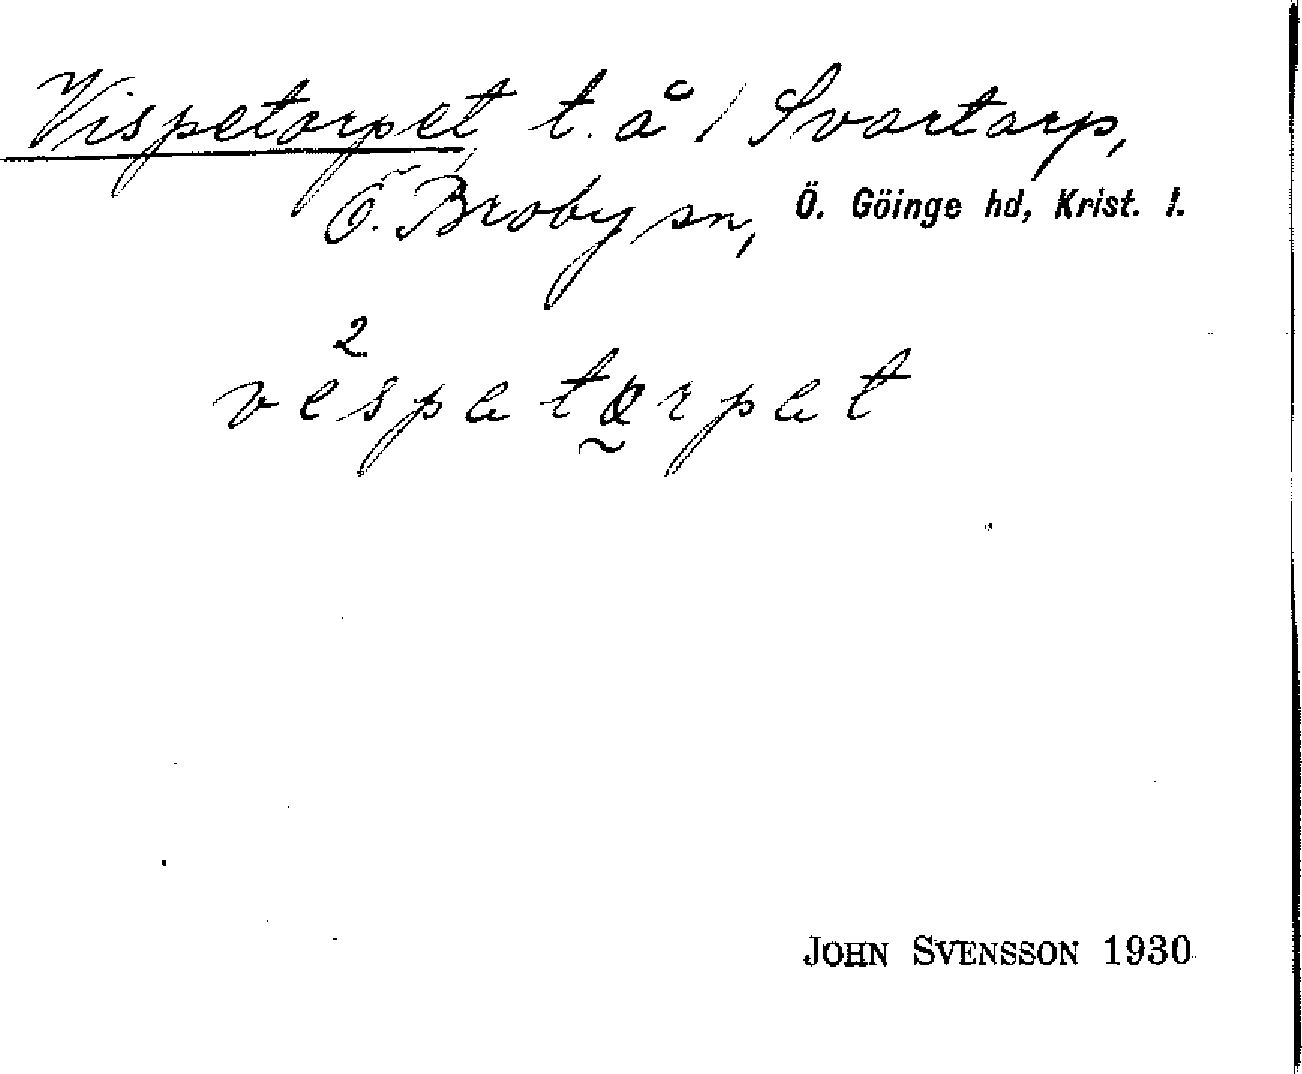 Vispetorpet t. å / Svartarp,
Ö. Broby sn, Ö. Göinge hd, Krist. l.
2
vespetorpet
JOHN SVENSSON 1930